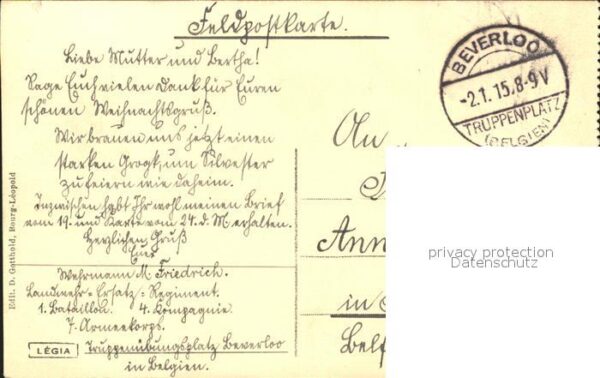 Feldpostkarte.
Liebe Mutter und Bertha!
Sage Euch vielen Dank für Euren
schönen Weihnachtsgruß.
Wir brauen uns jetzt einen
starken Grogk, um Silvester
zu feiern wie daheim.
Inzwischen habt Ihr wohl meinen Brief
vom 19. und Karte vom 24. d. M. erhalten.
Herzlichen Gruß
Euer
Wehrmann M. Friedrich.
Landwehr-Ersatz-Regiment.
1. Bataillon. 4. Kompagnie.
7. Armeekorps.
Truppenübungsplatz Beverloo
in Belgien.
LÉGIA
Edit. D. Gotthold, Bourg-Léopold
BEVERLOO
-2.1.15.8-9V
TRUPPENPLATZ
(BELGIEN)
An
Ann
in
Belg
privacy protection
Datenschutz